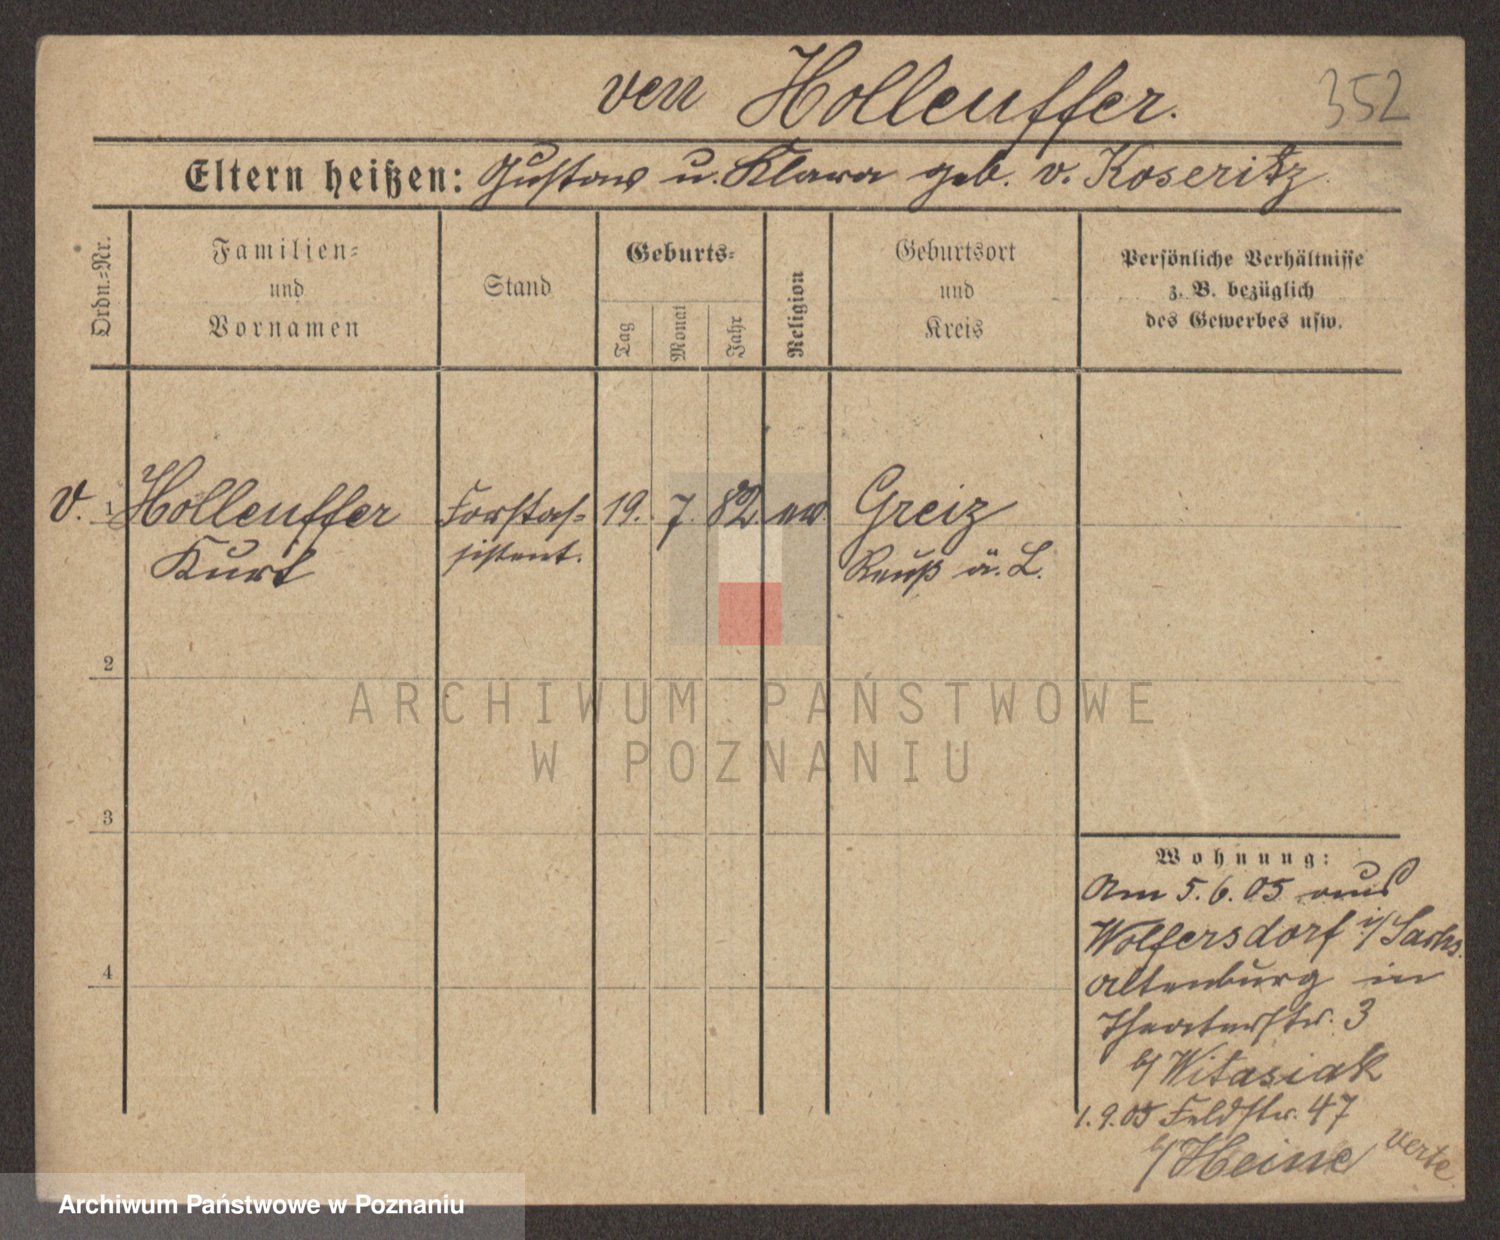 von Holleuffer.
352
Eltern heißen: Gustav u. Klara geb. v. Koseritz.
Ordn.-Nr.
Familien-
und
Vornamen
Stand
Geburts-
Tag
Monat
Jahr
Religion
Geburtsort
und
Kreis
Persönliche Verhältnisse
z. B. bezüglich
des Gewerbes usw.
v. 1 Holleuffer Forstas- 19. 7. 82. ev. Greiz
Kurt sistent. Reuß ä. L.
2
3
4
Wohnung:
Am 5.6.05 aus
Wolfersdorf i/Sachs.
Altenburg in
Theaterstr. 3
b/ Witasiak
1.9.05 Feldstr. 47
b/ Heine verte
ARCHIWUM PAŃSTWOWE
W POZNANIU
Archiwum Państwowe w Poznaniu